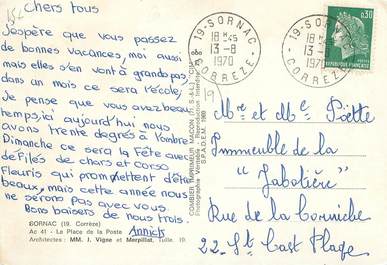 Chers tous
J'espère que vous passez
de bonnes vacances, moi aussi
mais elles s'en vont à grands pas,
dans un mois ce sera l'école,
Je pense que vous avez beau
temps, ici aujourd'hui nous
avons trente degrés à l'ombre
Dimanche ce sera la Fête avec
defilés de chars et corso
Fleuris qui promettent d'être
beaux, mais cette année nous
ne serons pas avec vous.
Bons baisers de nous trois.
Annick
SORNAC (19. Corrèze)
Ac 41 - La Place de la Poste
Architectes : MM. J. Vigne et Merpillat, Tulle 19.
COMBIER IMPRIMEUR MACON (71. S.-&-L.) "CIM"
Photographie Véritable - Reproduction Interdite
S.P.A.D.E.M. 1969
19-SORNAC
18H-45
13-8
1970
CORREZE
19-SORNAC
18H
13-8
1970
CORREZE
0,30
REPUBLIQUE FRANÇAISE
Mr et Me
Immeuble de la
"Jabotière"
Rue de la Corniche
22. St Cast Plage